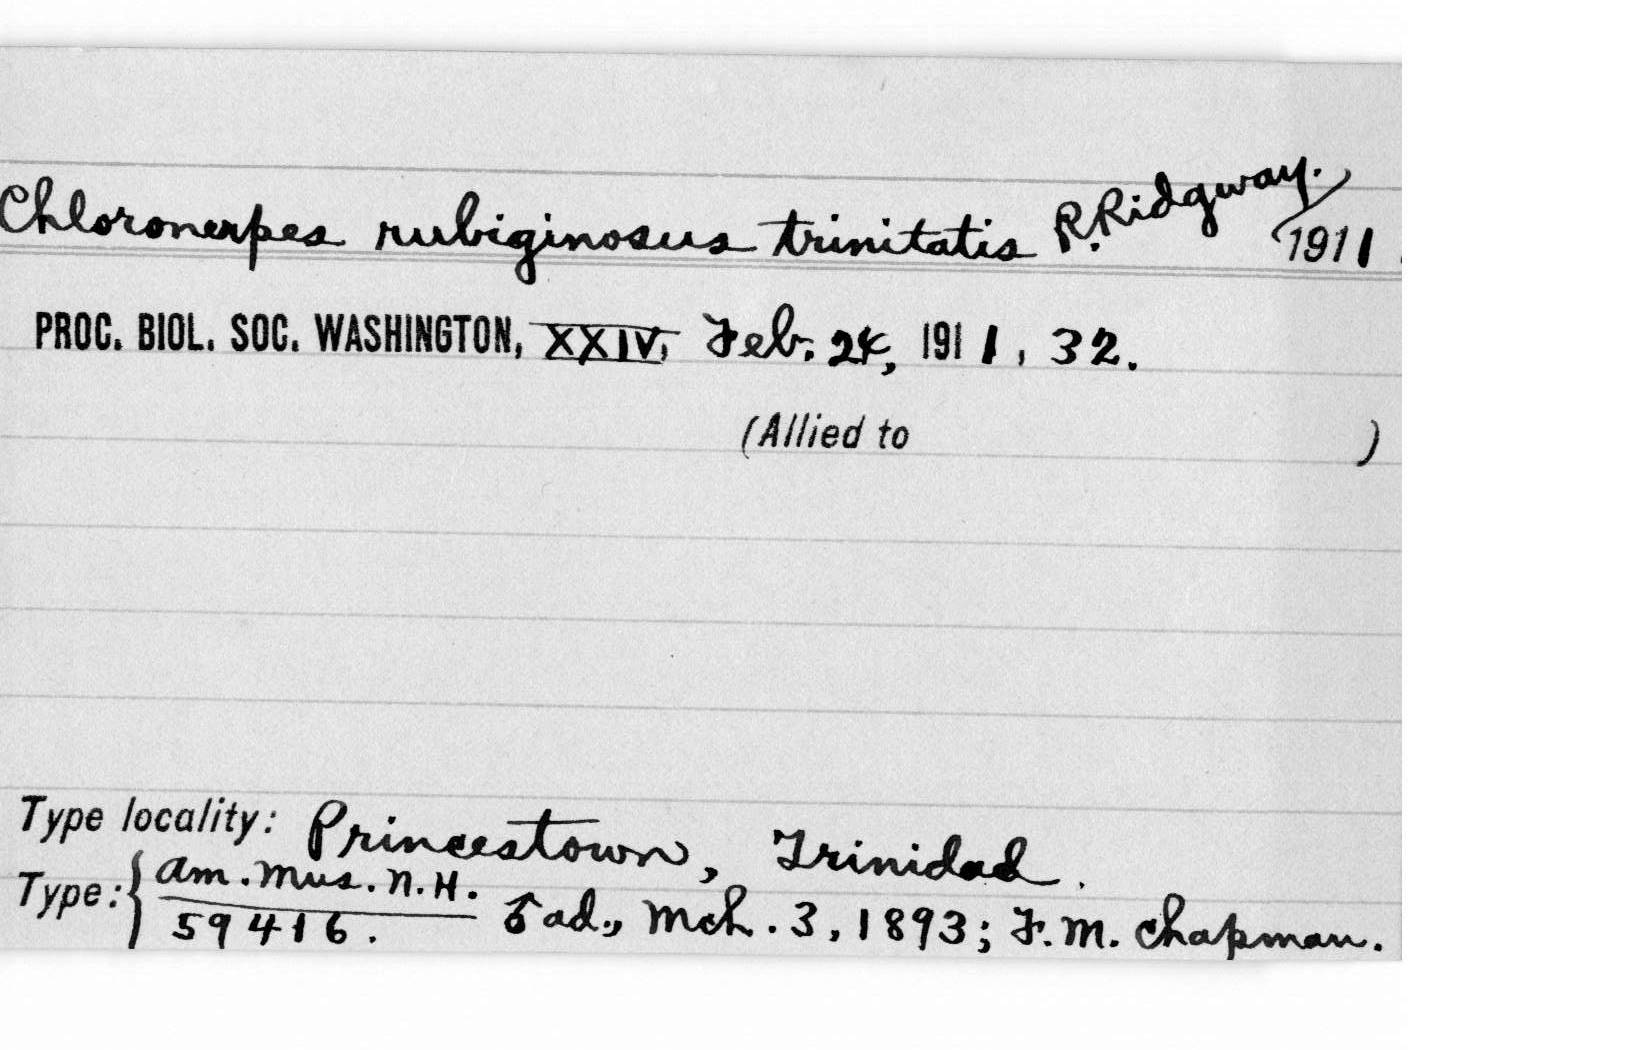 Chloronerpes rubiginosus trinitatis R. Ridgway. 1911
PROC. BIOL. SOC. WASHINGTON, XXIV, Feb. 24, 1911, 32.
(Allied to )
Type locality: Princestown, Trinidad.
Type: { Am. Mus. N. H.
59416. ♂ ad., Mch. 3, 1893; F. M. Chapman.